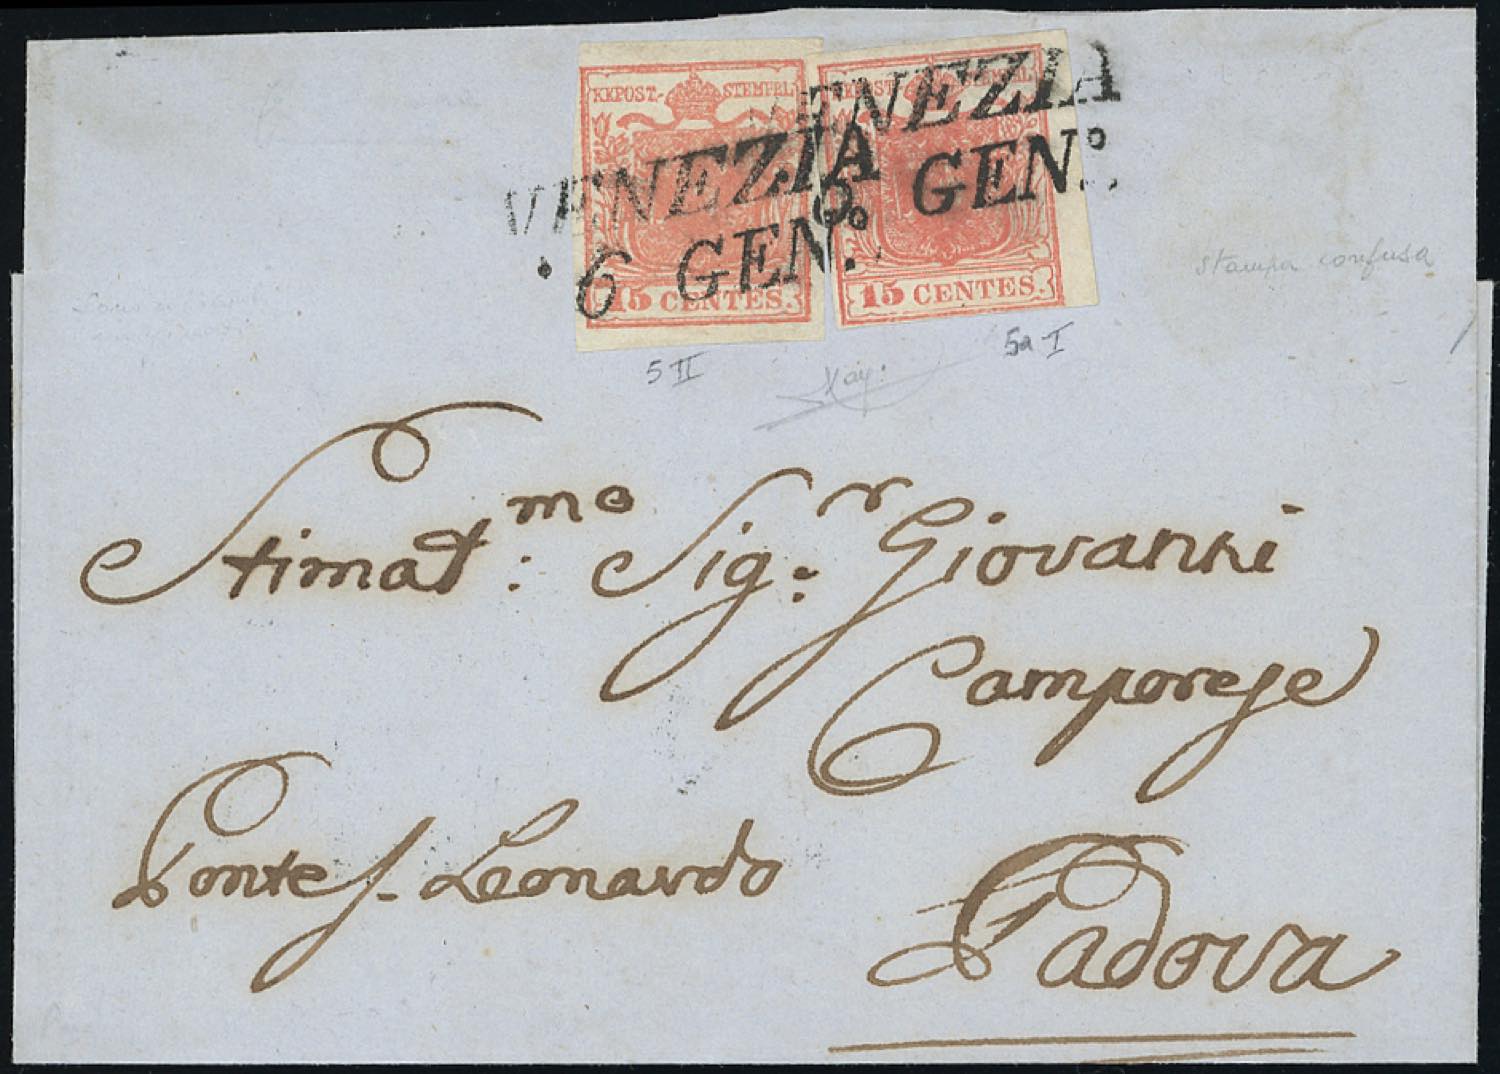 KKPOST-STEMPEL KKPOST-STEMPEL
VENEZIA
6 GEN.º
VENEZIA
6 GEN.º
15 CENTES. 15 CENTES.
5 II
5a I
stampa confusa
Stimat:mo Sig:r Giovanni
Camporese
Ponte S. Leonardo
Padova